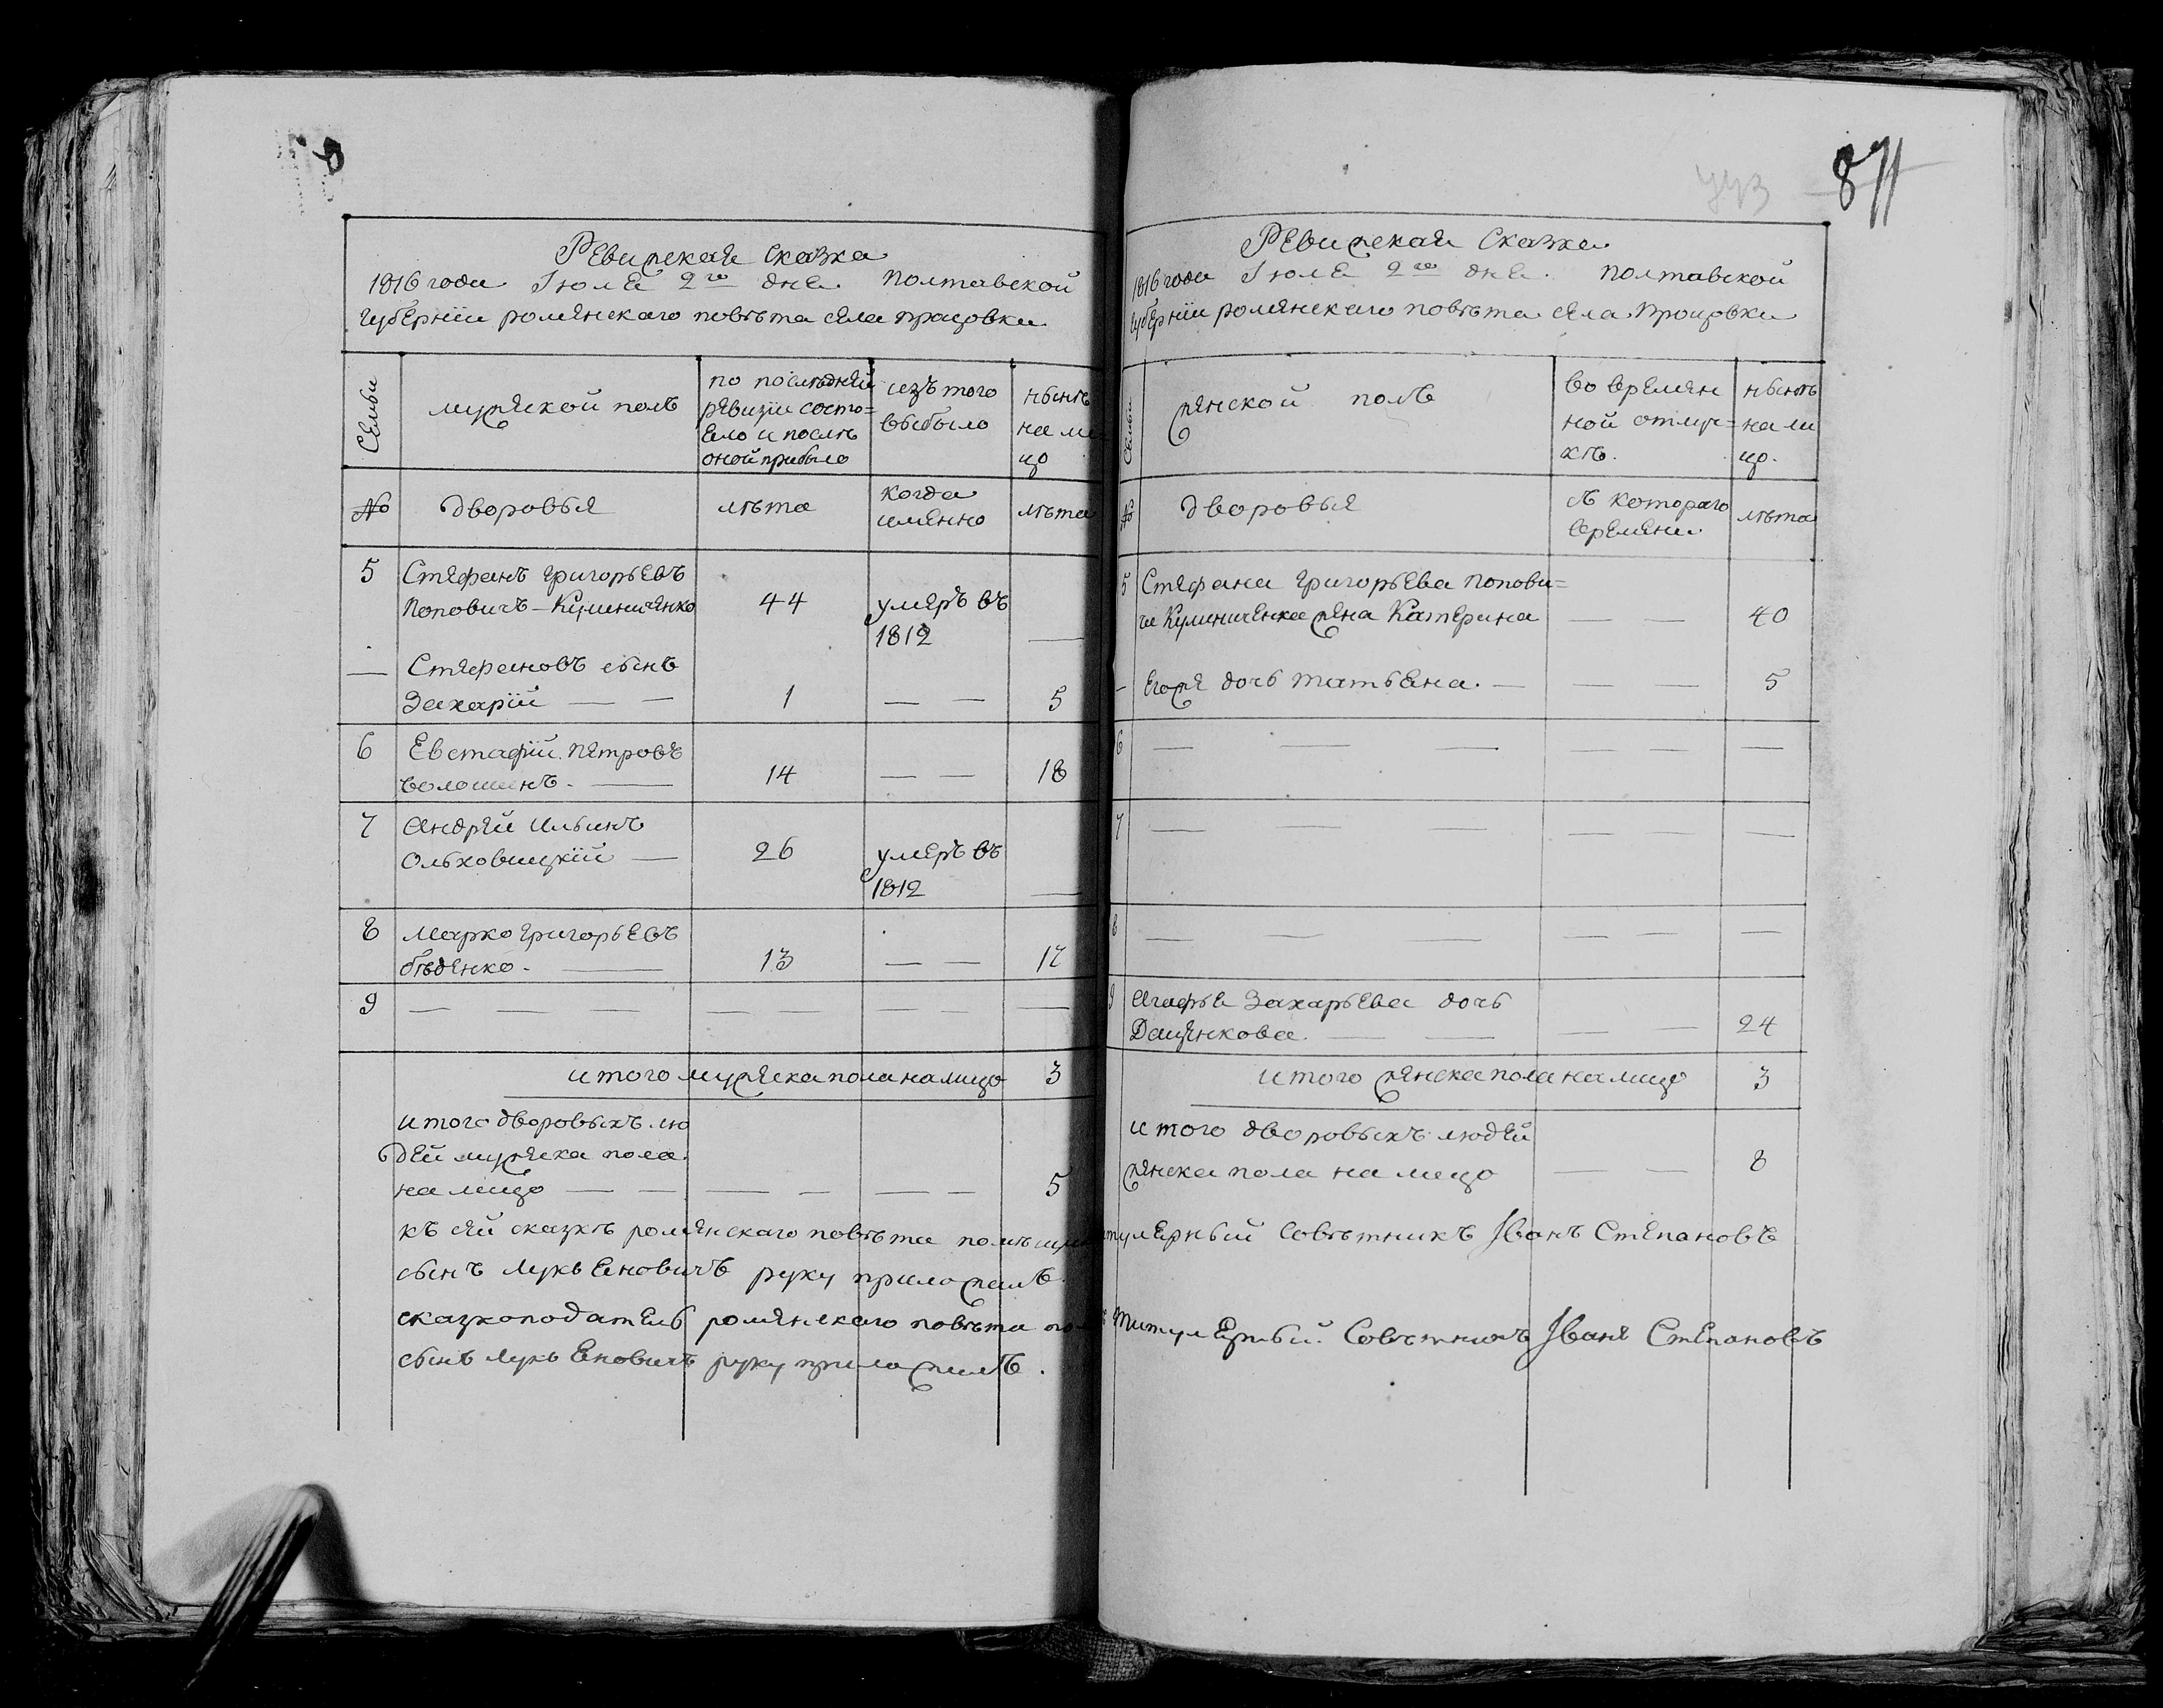 871
Ревижская Сказка
1816 года Іюля 2го дня. Полтавской
Губерніи роменскаго повѣта села процовки
Семьи
мужеской полъ
по послѣдней
ревизіи состо=
яло и послѣ
оной прибыло
изъ того
выбыло
нынѣ
на ли
цо
№
дворовыя
лѣта
когда
именно
лѣта
5 Стефанъ Григорьевъ
Поповичъ – Куминиченко 44 умеръ въ
1812 —
— Стефановъ сынъ
Захарій — — 1 — — 5
6 Евстафій Петровъ
волошинъ. — 14 — — 18
7 Андрей Ильинъ
Ольховицкій — 26 умеръ въ
1812 —
8 Марко Григорьевъ
бѣденко. — 13 — — 17
9 — — — — — — — —
итого мужеска пола на лицо 3
итого дворовыхъ лю
дей мужеска пола
на лицо — — — — — — 5
Ревижская Сказка
1816 года Іюля 2го дня. Полтавской
Губерніи роменскаго повѣта села Процовки
Семьи
женской полъ
во времян
ной отлуч=
кѣ.
нынѣ
на ли
цо.
№
дворовыя
съ котораго
времени
лѣта
5 Стефана Григорьева Попови=
ча Куминиченка жена Катерина — — 40
— Егожя дочь татьяна. — — — 5
6 — — — — — —
7 — — — — — —
8 — — — — — —
9 Агафья Захарьева дочь
Даценкова. — — — — 24
итого женска пола на лицо 3
итого дворовыхъ людей
женска пола на лицо — — 8
къ сей сказкѣ роменскаго повѣта Совѣтникъ Іванъ Степановъ
сынъ Лукьяновичъ руку приложилъ.
сказкоподатель роменскаго повѣта Титулярный Совѣтникъ Іванъ Степановъ
сынъ Лукьяновичъ руку приложилъ.